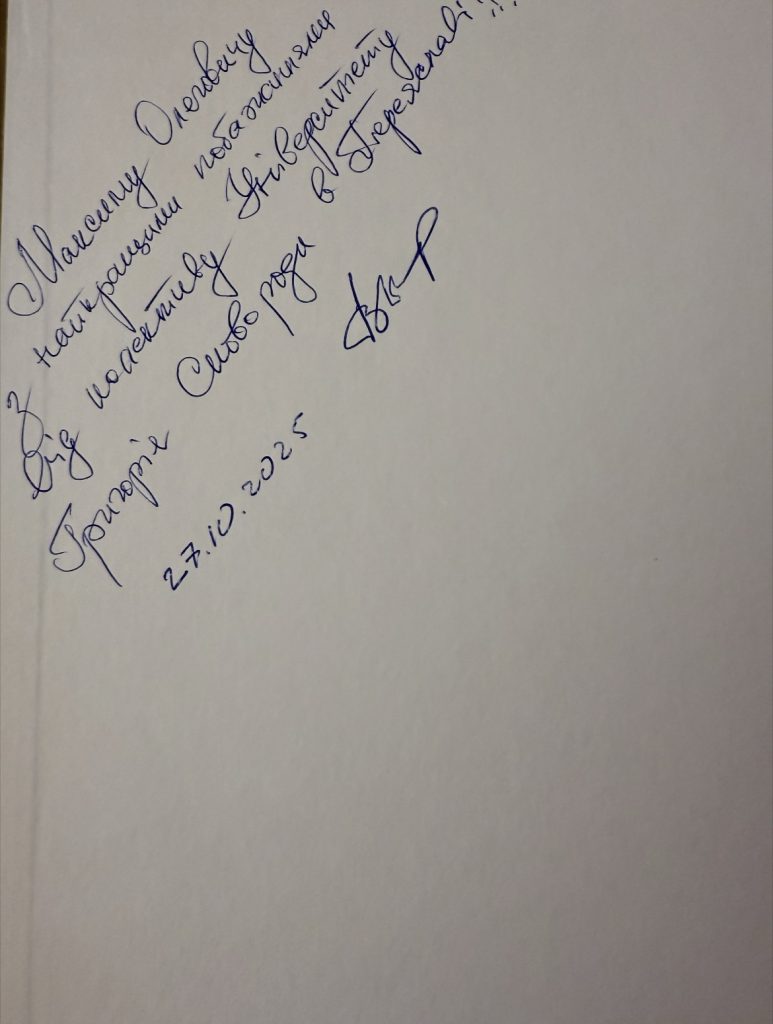 Максиму Олеговичу
з найкращими побажаннями
від колективу Університету
Григорія Сковороди в Переяславі!!!
27.10.2025